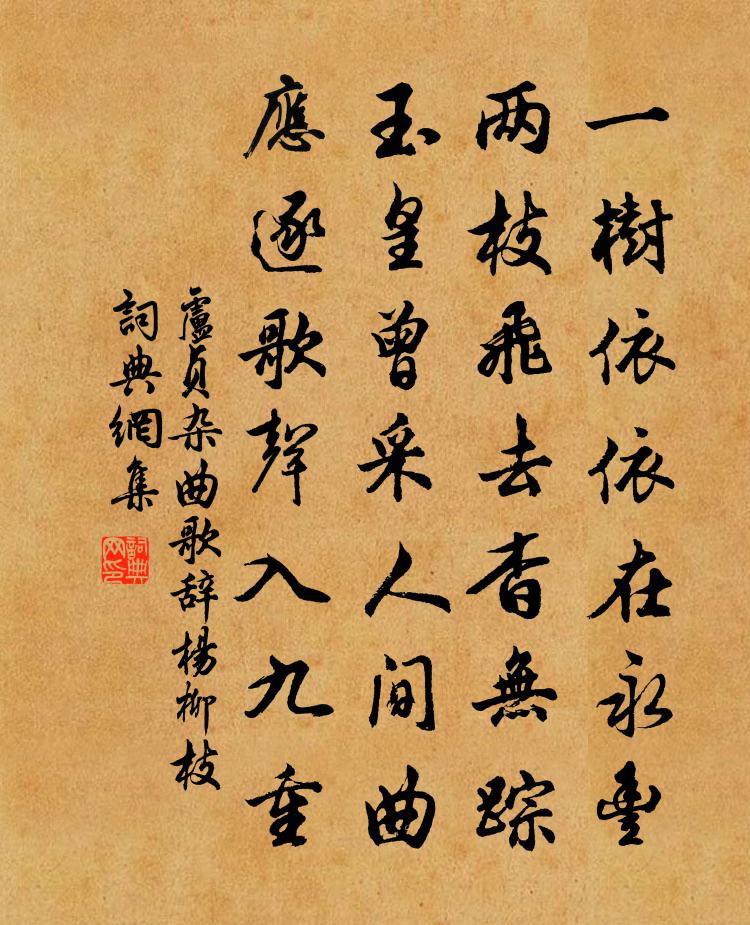 一樹依依在永豐
两枝飛去杳無踪
玉皇曾采人間曲
應逐歌聲入九重
盧貞杂曲歌辞楊柳枝
詞典網集
詞典网印